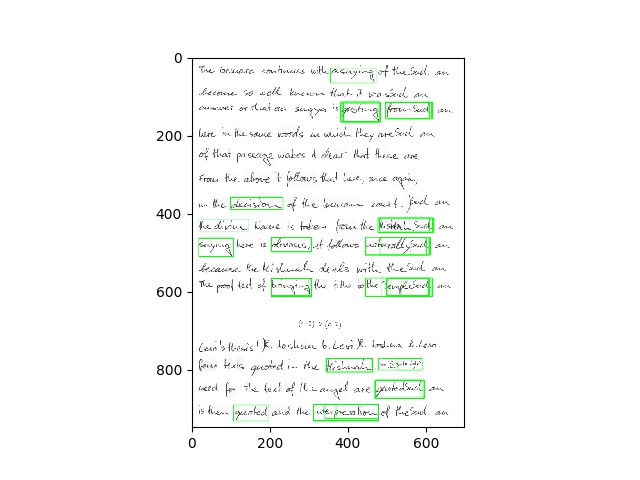 The Gemara continues with a saying of the Sud. an
become so well known that it was Sud an
answer or that an sugya is positing from Sud an
here in the same words in which they are Sud an
of that passage makes it clear that these are
From the above it follows that here, once again,
in the decision of the Gemara court. Sud an
the divine Name is taken from the Mishnah Sud an
saying here is obvious, it follows naturally Sud an
because the Mishnah deals with the Sud an
The proof text of bringing the tithe to the Temple Sud an
Levi's thesis! )R. Joshua b. Levi)R. Joshua b. Levi.
four texts quoted in the Mishnah
need for the text of this angel are quoted Sud an
is then quoted and the interpretation of the Sud. an
0
200
400
600
800
0 200 400 600